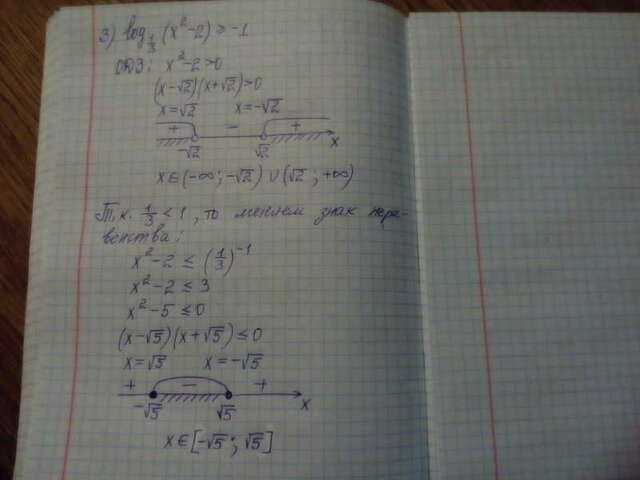 3) log_{1/3} (x² - 2) ≥ -1
ОДЗ: x² - 2 > 0
(x - √2)(x + √2) > 0
x = √2 x = -√2
+ - +
-√2 √2 x
x ∈ (-∞; -√2) ∪ (√2; +∞)
Т.к. 1/3 < 1, то меняем знак нера-
венства:
x² - 2 ≤ (1/3)⁻¹
x² - 2 ≤ 3
x² - 5 ≤ 0
(x - √5)(x + √5) ≤ 0
x = √5 x = -√5
+ - +
-√5 √5 x
x ∈ [-√5; √5]